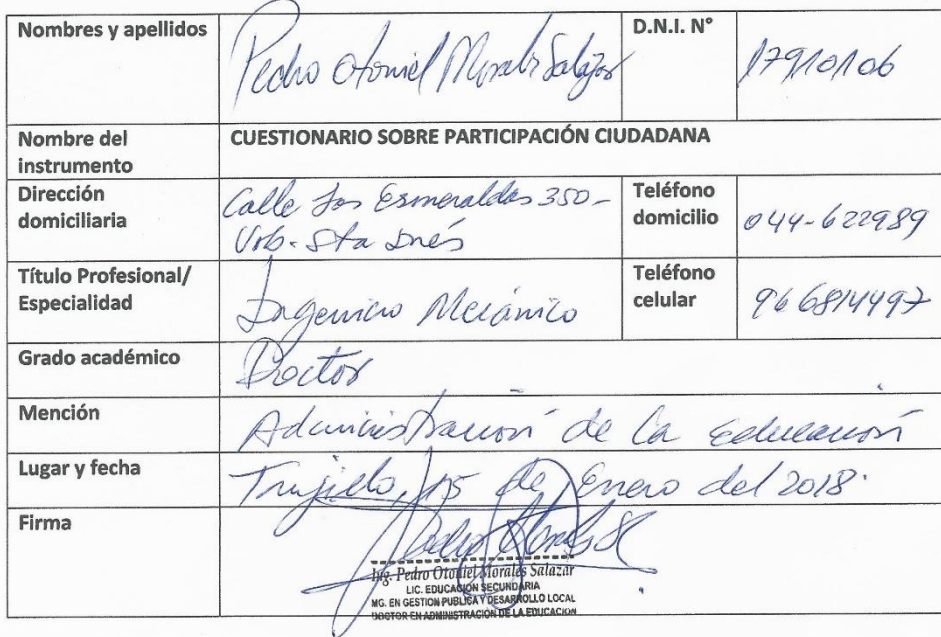 Nombres y apellidos
Pedro Otoniel Morales Salazar
D.N.I. N°
17910106
Nombre del
instrumento
CUESTIONARIO SOBRE PARTICIPACIÓN CIUDADANA
Dirección
domiciliaria
Calle Las Esmeraldas 350-
Urb. Sta Inés
Teléfono
domicilio
044-622989
Título Profesional/
Especialidad
Ingeniero Mecánico
Teléfono
celular
966814497
Grado académico
Doctor
Mención
Administración de la Educación
Lugar y fecha
Trujillo, 15 de Enero del 2018.
Firma
Ing. Pedro Otoniel Morales Salazar
LIC. EDUCACIÓN SECUNDARIA
MG. EN GESTION PUBLICA Y DESARROLLO LOCAL
DOCTOR EN ADMINISTRACIÓN DE LA EDUCACION